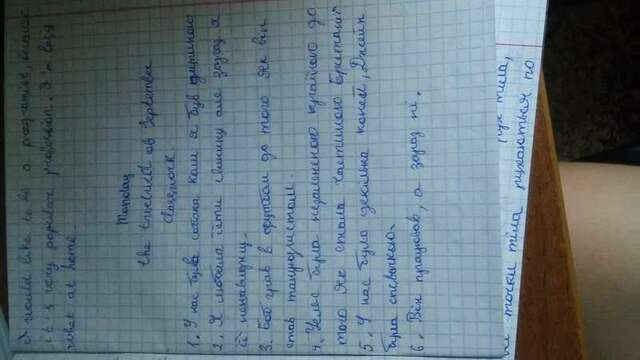 I would like to be a programist, because
it's very popular profession. I'm lazy
what at home.
Monday
the twelveth of September
Classwork.
1. У нас була собака коли я був дитиною
2. Я любила їсти свинину але зараз я
її ненавиджу.
3. Боб грав в футбол до того як він
став танцюристом.
4. Уельс була незалежною країною до
того як стала частиною Британії
5. У нас було декілька коней, Джейн
була співачкою.
6. Він працював, а зараз ні.
рух тіла,
точки тіла рухаються по